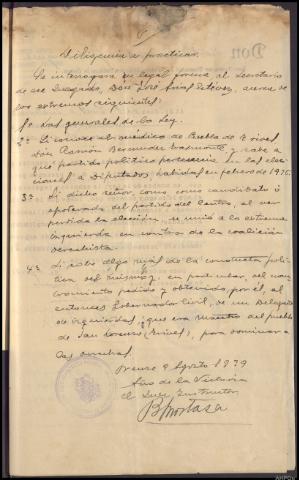 Diligencia a practicar.
Se interrogara en legal forma al Secretario
de ese Juzgado, Don José , acerca de
los extremos siguientes:
1º Las generales de la Ley.
2º Si conoce al médico de Puebla de Trives
Don Ramón Bermudez y sabe a
qué partido politico pertenecia en las elec-
ciones a Diputados habidas en febrero de 1936.
3º Si dicho señor, como candidato ó
apoderado del partido del Centro, al ver
perdida la elección, se unió a la extrema
izquierda en contra de la coalición
derechista.
4º Si sabe algo mas de la conducta poli-
tica del mismo y, en particular, del nom-
bramiento pedido y obtenido por él, al
entonces Gobernador Civil, de un Delegado
de izquierdas, que era Maestro del pueblo
de San Lorenzo (Trives), para dominar a
las derechas.
Orense 9 Agosto 1939
Año de la Victoria
El Juez Instructor